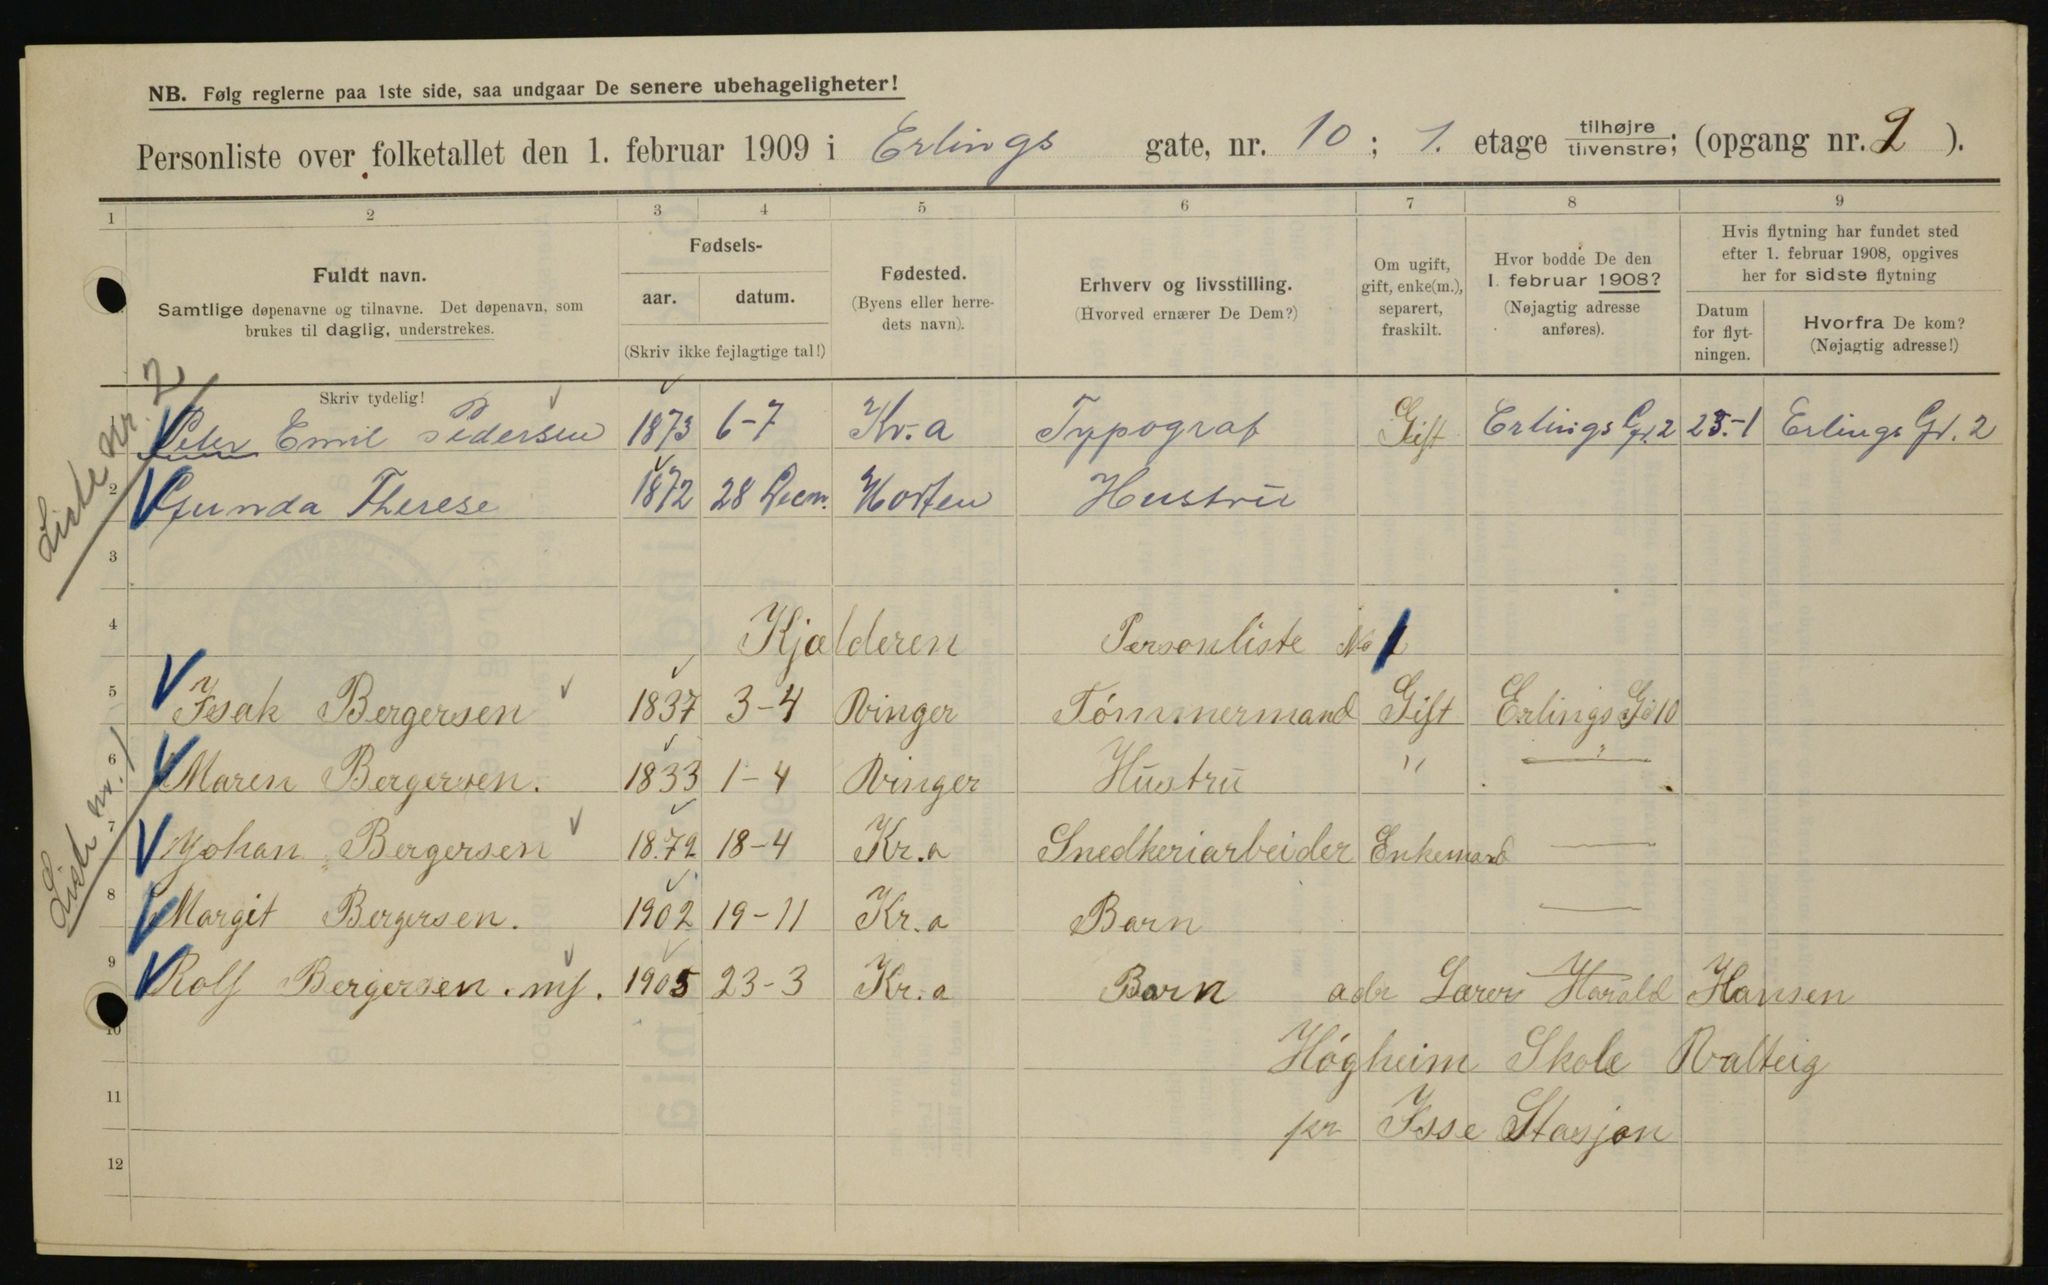 NB. Følg reglerne paa 1ste side, saa undgaar De senere ubehageligheter!
Personliste over folketallet den 1. februar 1909 i Erlings gate, nr. 10 ; 1. etage tilhøjre tilvenstre; (opgang nr. 2 ).
1 2 3 4 5 6 7 8 9
Fuldt navn.
Samtlige døpenavne og tilnavne. Det døpenavn, som
brukes til daglig, understrekes.
Skriv tydelig!
Fødsels-
aar. datum.
(Skriv ikke fejlagtige tal!)
Fødested.
(Byens eller herre-
dets navn).
Erhverv og livsstilling.
(Hvorved ernærer De Dem?)
Om ugift,
gift, enke(m.),
separert,
fraskilt.
Hvor bodde De den
1. februar 1908?
(Nøjagtig adresse
anføres).
Hvis flytning har fundet sted
efter 1. februar 1908, opgives
her for sidste flytning
Datum
for flyt-
ningen.
Hvorfra De kom?
(Nøjagtig adresse!)
Liste nr. 2
Peter Emil Pedersen 1873 6-7 Kr.a Typograf Gift Erlings Gt. 2 25.-1 Erlings Gt. 2
2 Gunda Therese 1872 28 Decm. Horten Hustru
3
4 Kjælderen Personliste No 1
Liste nr. 1
5 Isak Bergersen 1837 3-4 Vinger Tømmermand Gift Erlings G 10
6 Maren Bergersen. 1833 1-4 Vinger Hustru " "
7 Johan Bergersen 1872 18-4 Kr.a Snedkeriarbeider Enkemand —
8 Margit Bergersen. 1902 19-11 Kr.a Barn —
9 Rolf Bergersen. mf. 1905 23-3 Kr.a Barn adr Lærer Harald Hansen
10 Høgheim Skole Valteig
11 pr Isse Stasjon
12